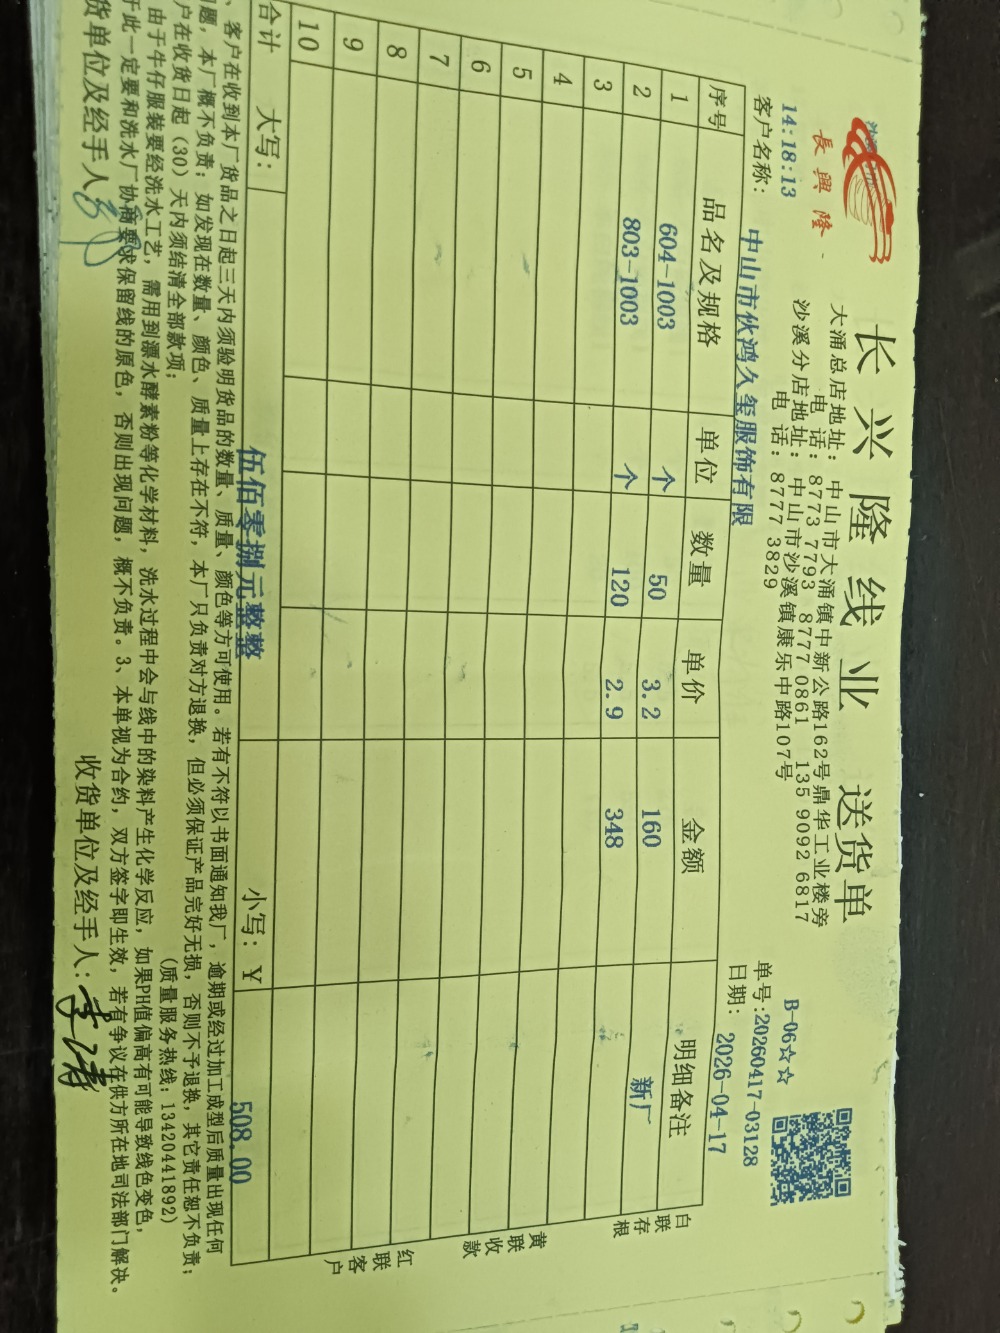 長興隆
长兴隆线业 送货单
大涌总店地址：中山市大涌镇中新公路162号鼎华工业楼旁
电 话：8773 7793 8777 0861 135 9092 6817
沙溪分店地址：中山市沙溪镇康乐中路107号
电 话：8777 3829
14:18:13
B-06☆☆
单号:20260417-03128
客户名称： 中山市伙鸿久玺服饰有限
日期： 2026-04-17
序号 品名及规格 单位 数量 单价 金额 明细备注
1 604-1003 个 50 3.2 160 新厂
2 803-1003 个 120 2.9 348
3
4
5
6
7
8
9
10
合计 大写： 伍佰零捌元整整 小写：￥ 508.00
白联存根
黄联收款
红联客户
、客户在收到本厂货品之日起三天内须验明货品的数量、质量、颜色等方可使用。若有不符以书面通知我厂，逾期或经过加工成型后质量出现任何
问题，本厂概不负责；如发现在数量、颜色、质量上存在不符，本厂只负责对方退换，但必须保证产品完好无损，否则不予退换，其它责任恕不负责；
户在收货日起（30）天内须结清全部款项； （质量服务热线：13420441892）
由于牛仔服装要经洗水工艺，需用到漂水酵素粉等化学材料，洗水过程中会与线中的染料产生化学反应，如果PH值偏高有可能导致线色变色，
于此一定要和洗水厂协商要求保留线的原色，否则出现问题，概不负责。3、本单视为合约，双方签字即生效，若有争议在供方所在地司法部门解决。
货单位及经手人 收货单位及经手人：